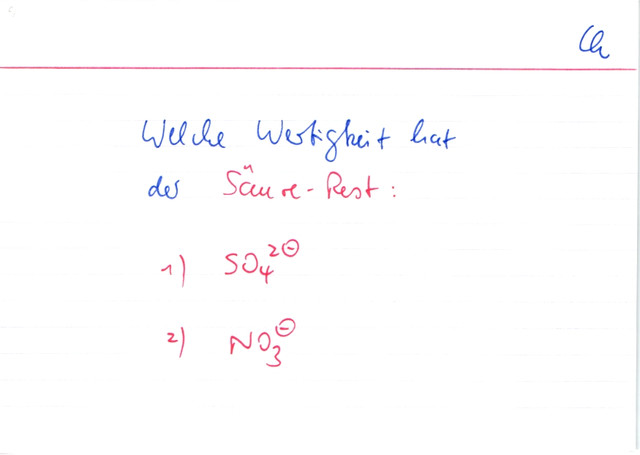 Ch
Welche Wertigkeit hat
der Säure-Rest:
1) SO₄²⊖
2) NO₃⊖